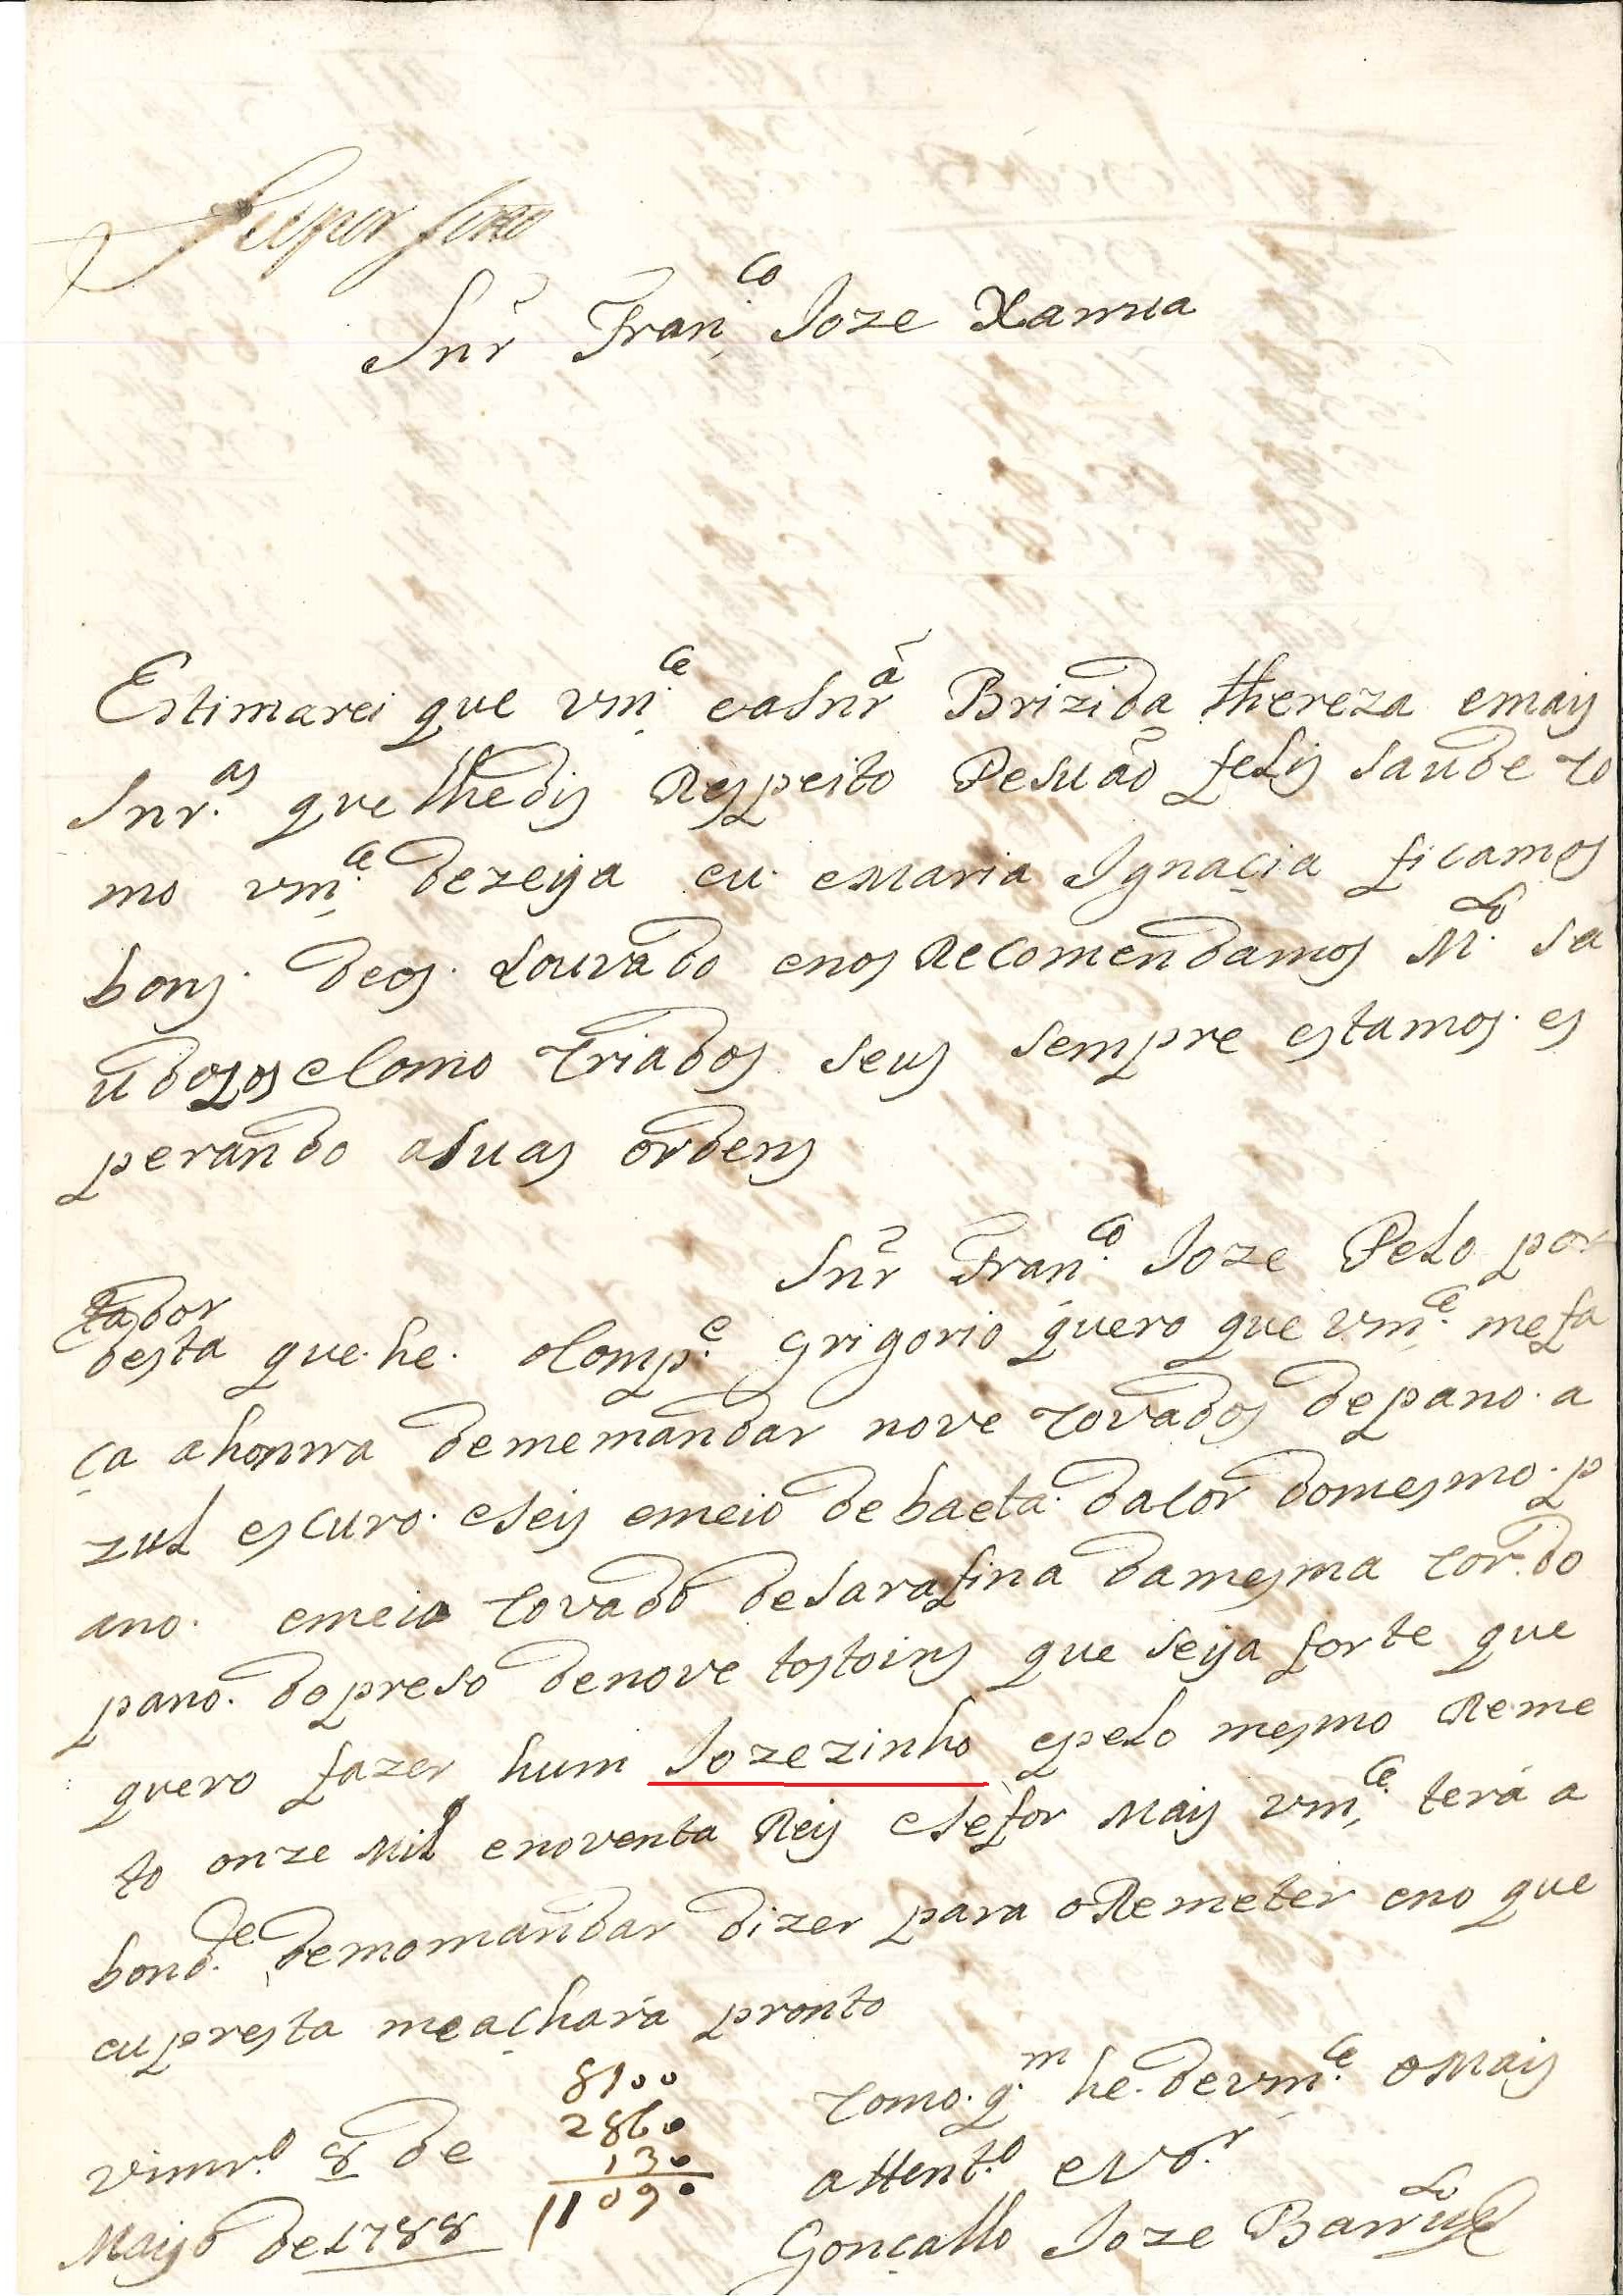 Super fino
Snr Fran.co Joze Xamua
Estimarei que vm.ce eaSnra Brizida thereza emais
Snr.as que lhedis Respeito Pesuão felis Saude co
mo vm.ce dezeya eu. eMaria Ignacia ficamos
bons. deos. Louvado enos Recomendamos M.to Sa
udozos eComo Criados seus sempre estamos. es
perando aSuas ordens
Snr Fran.co Joze Pelo por
tador
desta que. he. oComp.e Grigorio quero que vm.ce mefa
ça ahonrra dememandar nove covados depano. a
zul escuro. eSeis emeio de baeta. dacor domesmo. p
ano. emeio covado deSarafina damesma cor. do
pano. dopreso denove tostoins que Seya forte que
quero fazer hum Jozezinho epelo mesmo Reme
to onze Mil enoventa Reis eSefor Mais vm.ce terá a
bond.e demomandar dizer para oRemeter eno que
eu presta meachará pronto
8100
2860
130
11090
Como. q.m he. devm.ce oMais
attent.o eV.or
Gonçallo Joze
vimr.o 8 de
Mayo de 1788